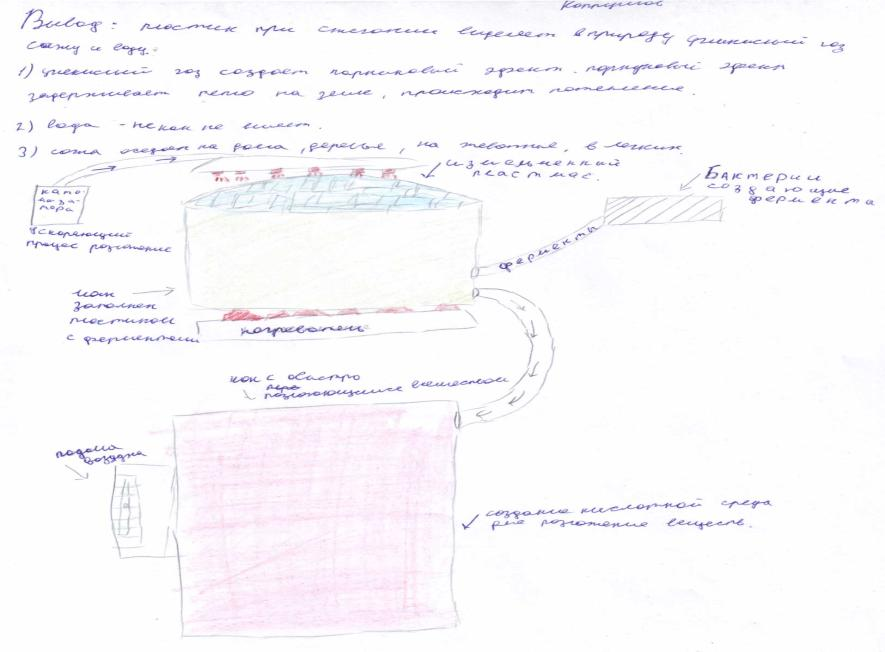 Вывод: пластик при сжегании выделяет в природу углекислый газ
сажу и воду.
1) углекислий газ создает парниковый эфект. парниковый эфект
задерживает тепло на земле, происходит потепление.
2) вода - некак не влияет.
3) сажа оседает на дома, деревья, на животные, в легких.
измельченный
пластмас.
Бактерии
создающие
фермента
ферменты
ускоряющий
процес разложение
чан
заполнен
пластиком
с ферментами
нагреватель
чан с быстро
разлогающимся веществом
подача
воздуха
создание кислотной среда
для разложение веществ.